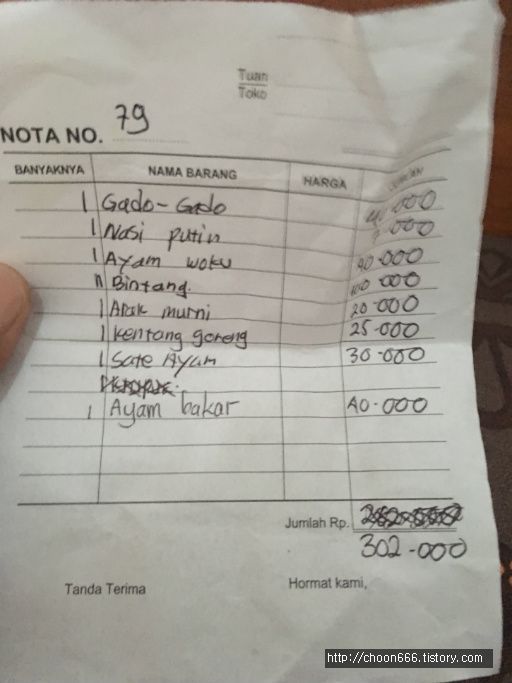 Tuan
Toko
NOTA NO. 79
BANYAKNYA NAMA BARANG HARGA
1 Gado-Gado 40.000
1 Nasi putih 7.000
1 Ayam woku 40.000
Bintang. 100.000
1 Arak murni 20.000
1 kentang goreng 25.000
1 Sate Ayam 30.000
1 Ayam bakar 40.000
Jumlah Rp.
302.000
Tanda Terima Hormat kami,
http://choon666.tistory.com